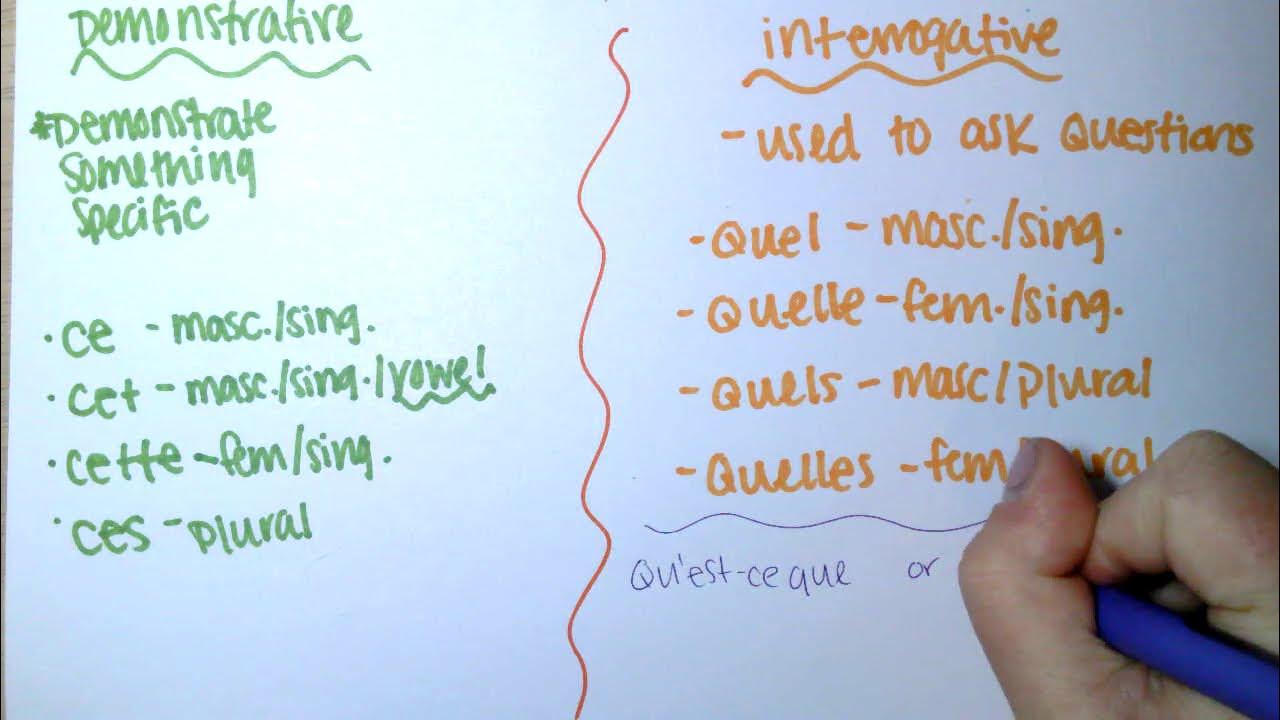 Demonstrative
*Demonstrate
something
specific
· ce - masc./sing.
· cet - masc./sing./vowel
· cette - fem/sing.
· ces - plural
interrogative
- used to ask questions
- Quel - masc./sing.
- Quelle - fem./sing.
- Quels - masc/plural
- Quelles - fem
Qu'est-ce que or